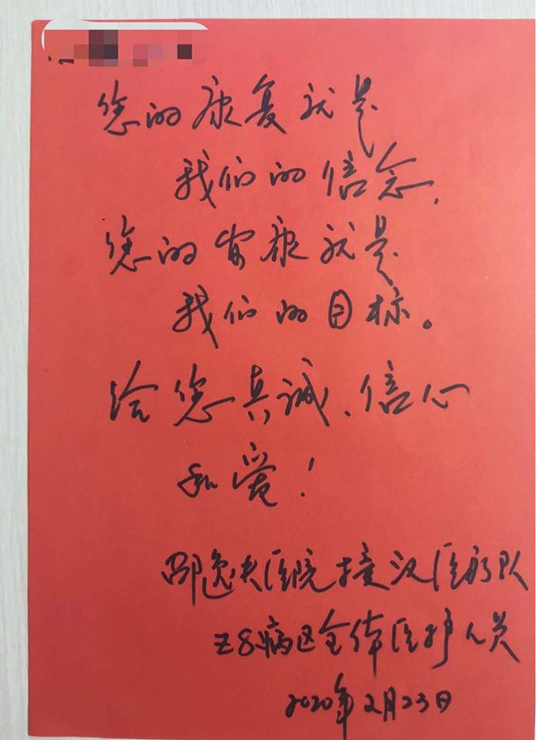 您的康复就是
我们的信念,
您的安康就是
我们的目标。
给您真诚、信心
和爱!
邵逸夫医院援汉医疗队
Z8病区全体医护人员
2020年2月23日